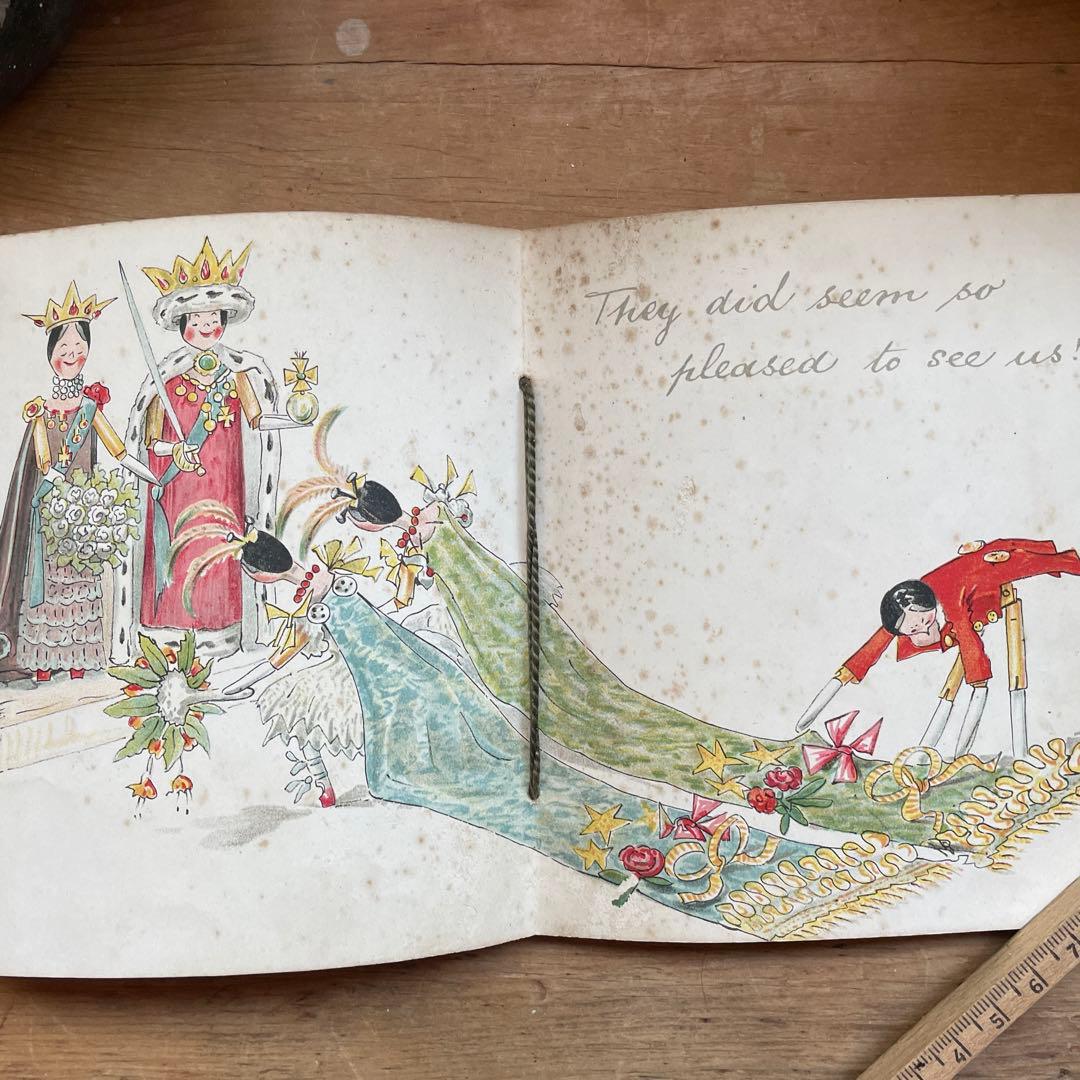 They did seem so
pleased to see us!
4 5 6 7